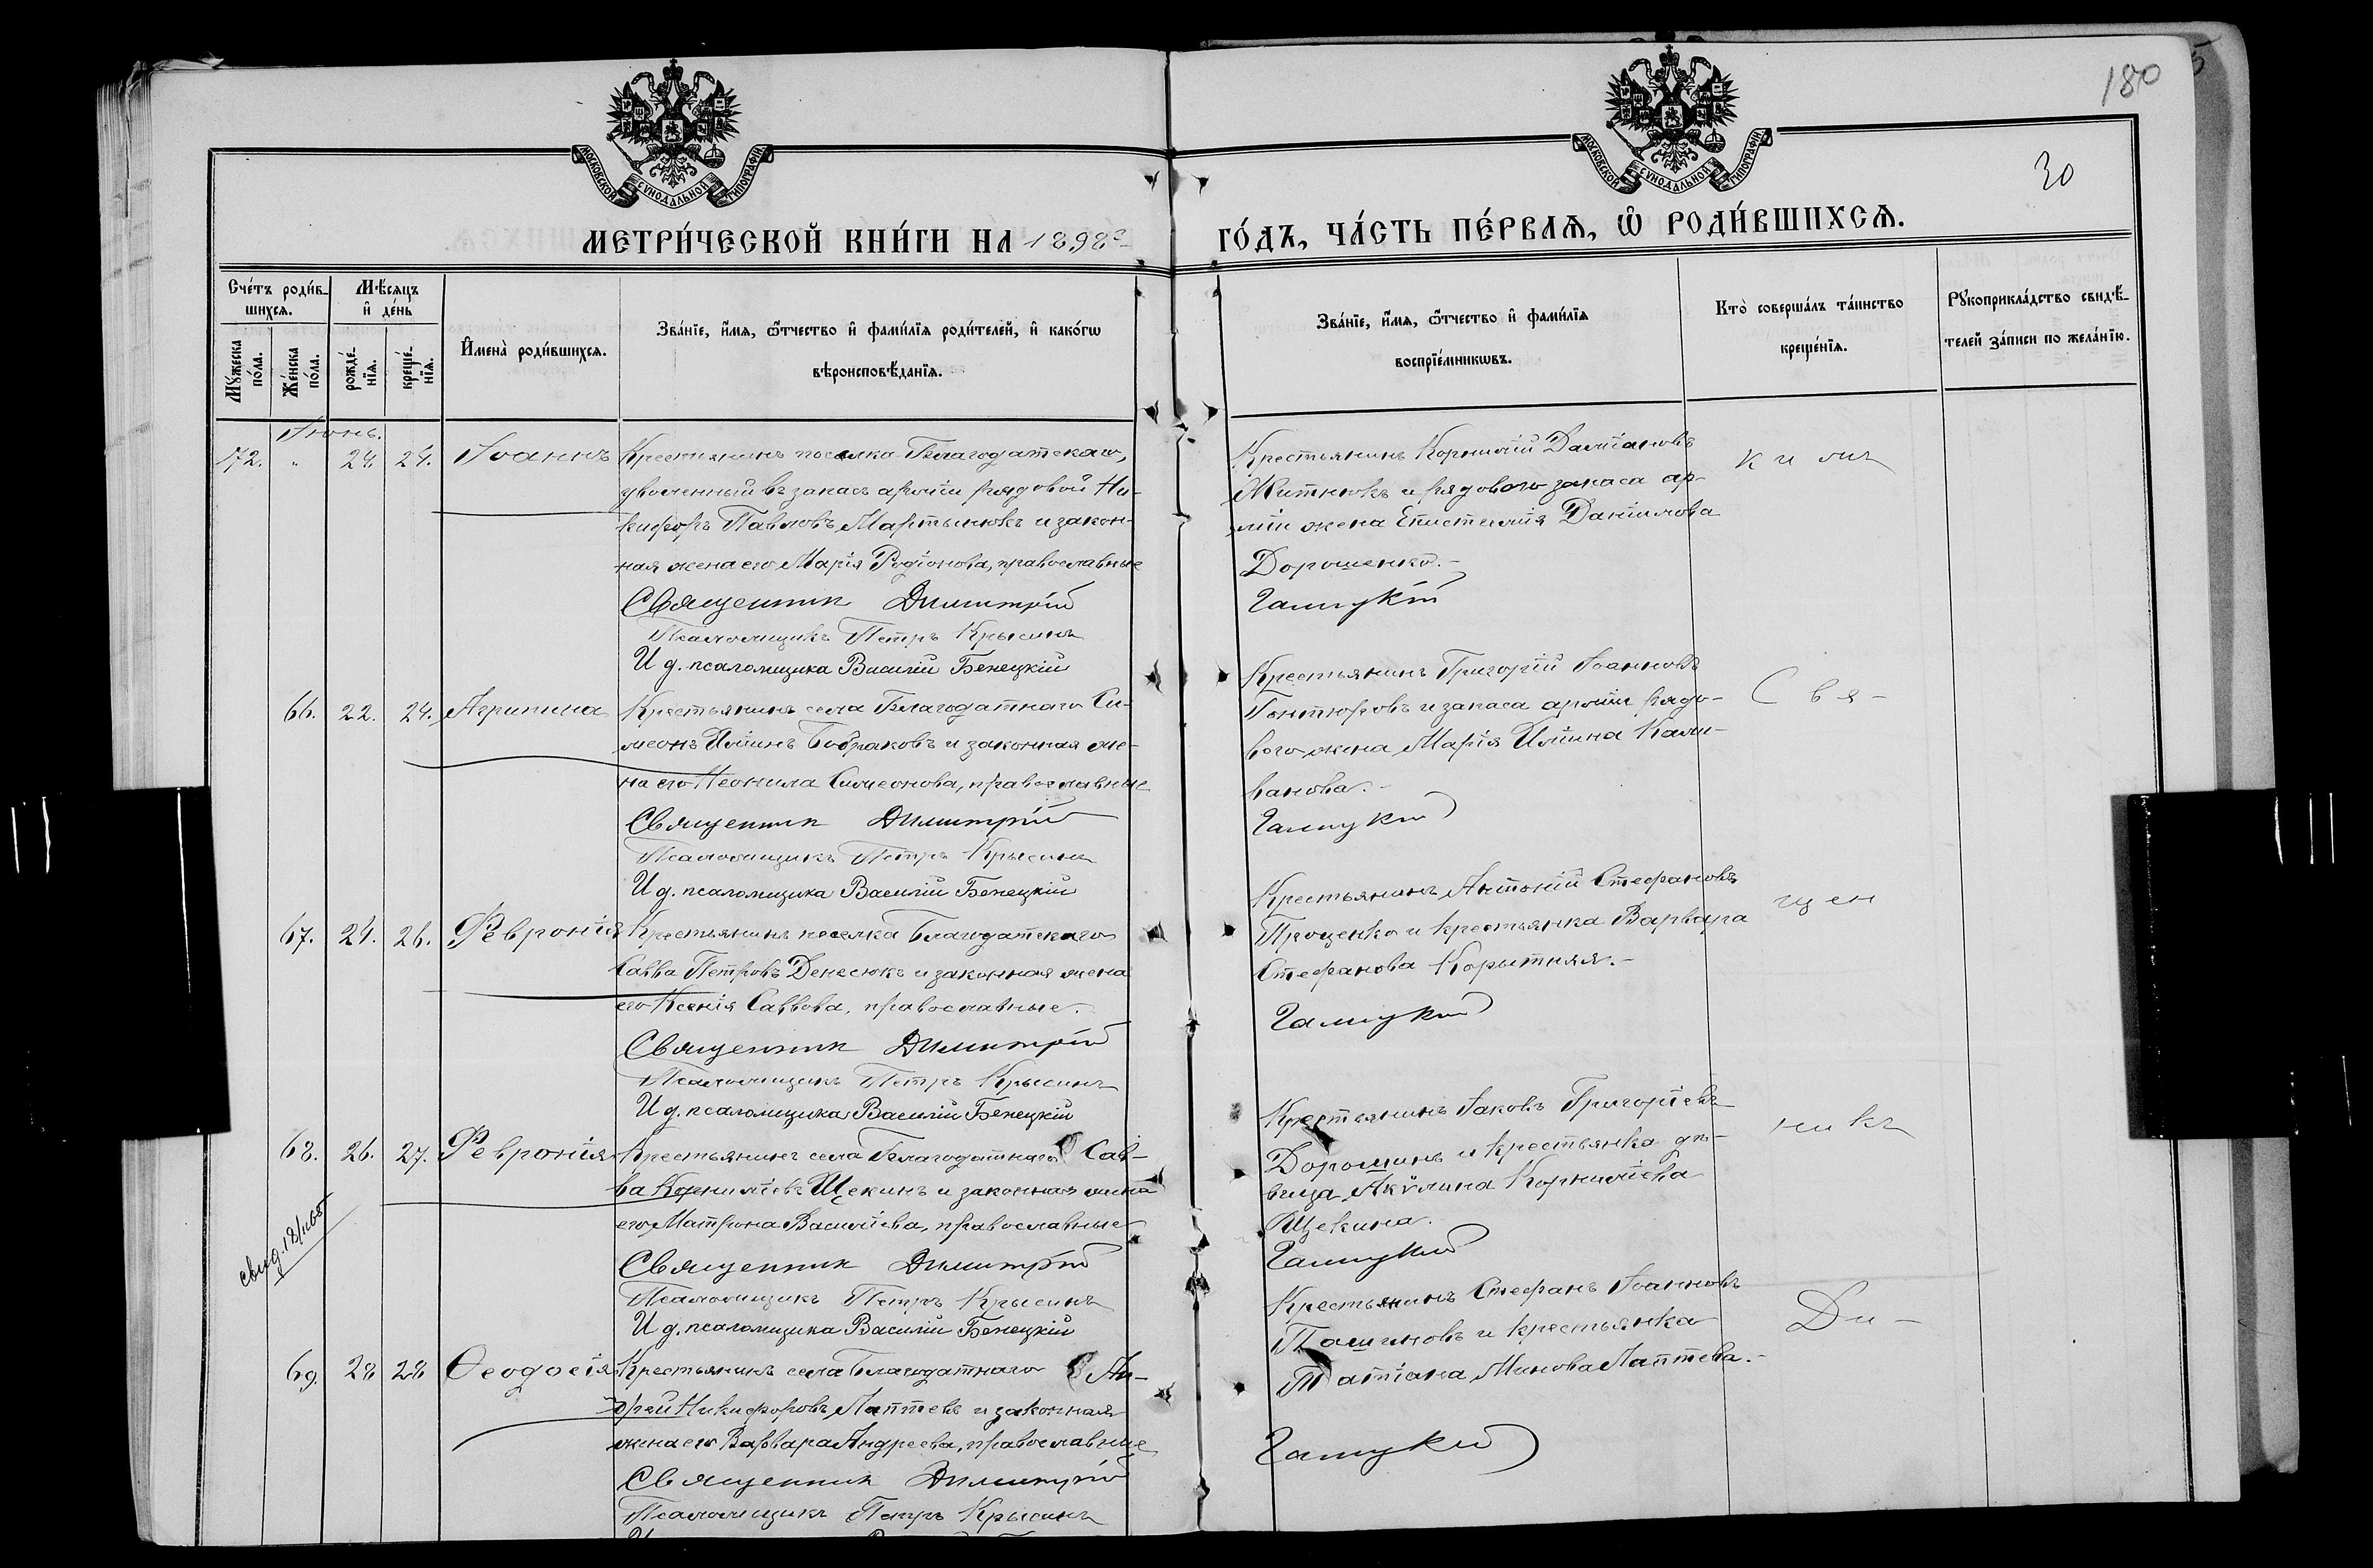 180
30
МОСКОВСКОЙ СѴНОДАЛЬНОЙ ТИПОГРАФІИ.
МОСКОВСКОЙ СѴНОДАЛЬНОЙ ТИПОГРАФІИ.
МЕТРИ́ЧЕСКОЙ КНИ́ГИ НА 1898 ГО́ДЪ, ЧА́СТЬ ПЕ́РВАѦ, Ѡ РОДИ́ВШИХСѦ.
Сче́тъ роди́в-
шихсѧ.
Мѣ́сѧцъ
и де́нь
Мꙋ́жеска по́ла.
Же́нска по́ла.
рожде́-
нїѧ.
креще́-
нїѧ.
Имена̀ роди́вшихсѧ.
Зва́нїе, и́мѧ, ѻ́тчество и фами́лїѧ роди́телей, и како́гѡ
вѣроисповѣ́данїѧ.
Зва́нїе, и́мѧ, ѻ́тчество и фами́лїѧ
воспрїе́мникѡвъ.
Кто̀ соверша́лъ та́инство
креще́нїѧ.
Рꙋкоприкла́дство свидѣ́-
телей за́писи по жела́нїю.
Іюнь.
72. " 24. 24. Іоаннъ
Крестьянинъ поселка Благодатскаго,
уволенный въ запасъ арміи рядовой Ни-
кифоръ Павловъ Мартынюкъ и закон-
ная жена его Марія Родіонова, православные
Священник Димитрій
Псаломщикъ Петръ Крысинъ
И д. псаломщика Василій Бенецкій
Крестьянинъ Корнилій Даміановъ
Житнюкъ и рядового запаса ар-
міи жена Епистимія Даніилова
Дорошенко.-
Галицкій
66. 22. 24. Агрипина
Крестьянинъ села Благодатнаго Си-
меонъ Иліинъ Бобраковъ и законная же-
на его Неонила Симеонова, православные
Священник Димитрій
Псаломщикъ Петръ Крысинъ
И д. псаломщика Василій Бенецкій
Крестьянинъ Григорій Іоанновъ
и запаса арміи рядо-
вого жена Марія Иліина Кали-
ванова.-
Галицкій
Свя-
67. 24. 26. Февронія
Крестьянинъ поселка Благодатскаго
Савва Петровъ Денесюкъ и законная жена
его Ксенія Саввова, православные.
Священник Димитрій
Псаломщикъ Петръ Крысинъ
И д. псаломщика Василій Бенецкій
Крестьянинъ Антоній Стефановъ
Проценко и крестьянка Варвара
Стефанова Корытняя.-
Галицкій
щен
68. 26. 27. Февронія
Крестьянинъ села Благодатнаго Сав-
ва Корниліевъ Щекинъ и законная жена
его Матрона Василіева, православные
Священник Димитрій
Псаломщикъ Петръ Крысинъ
И д. псаломщика Василій Бенецкій
Крестьянинъ Іаковъ Григоріевъ
Дорошинъ и крестьянка дѣ-
вица Акѵлина Корниліева
Щекина.
Галицкій
никъ
69. 28 28 Ѳеодосія
Крестьянинъ села Благодатнаго Ан-
дрей Никифоровъ Лаптевъ и законная
жена его Варвара Андреева, православные
Священник Димитрій
Псаломщикъ Петръ Крысинъ
Крестьянинъ Стефанъ Іоанновъ
Пашиновъ и крестьянка
Татіана Минова Лаптева.-
Галицкій
Ди-